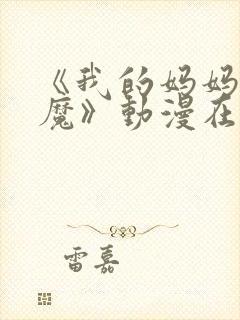 《我的妈妈
魔》動漫在
雷嘉